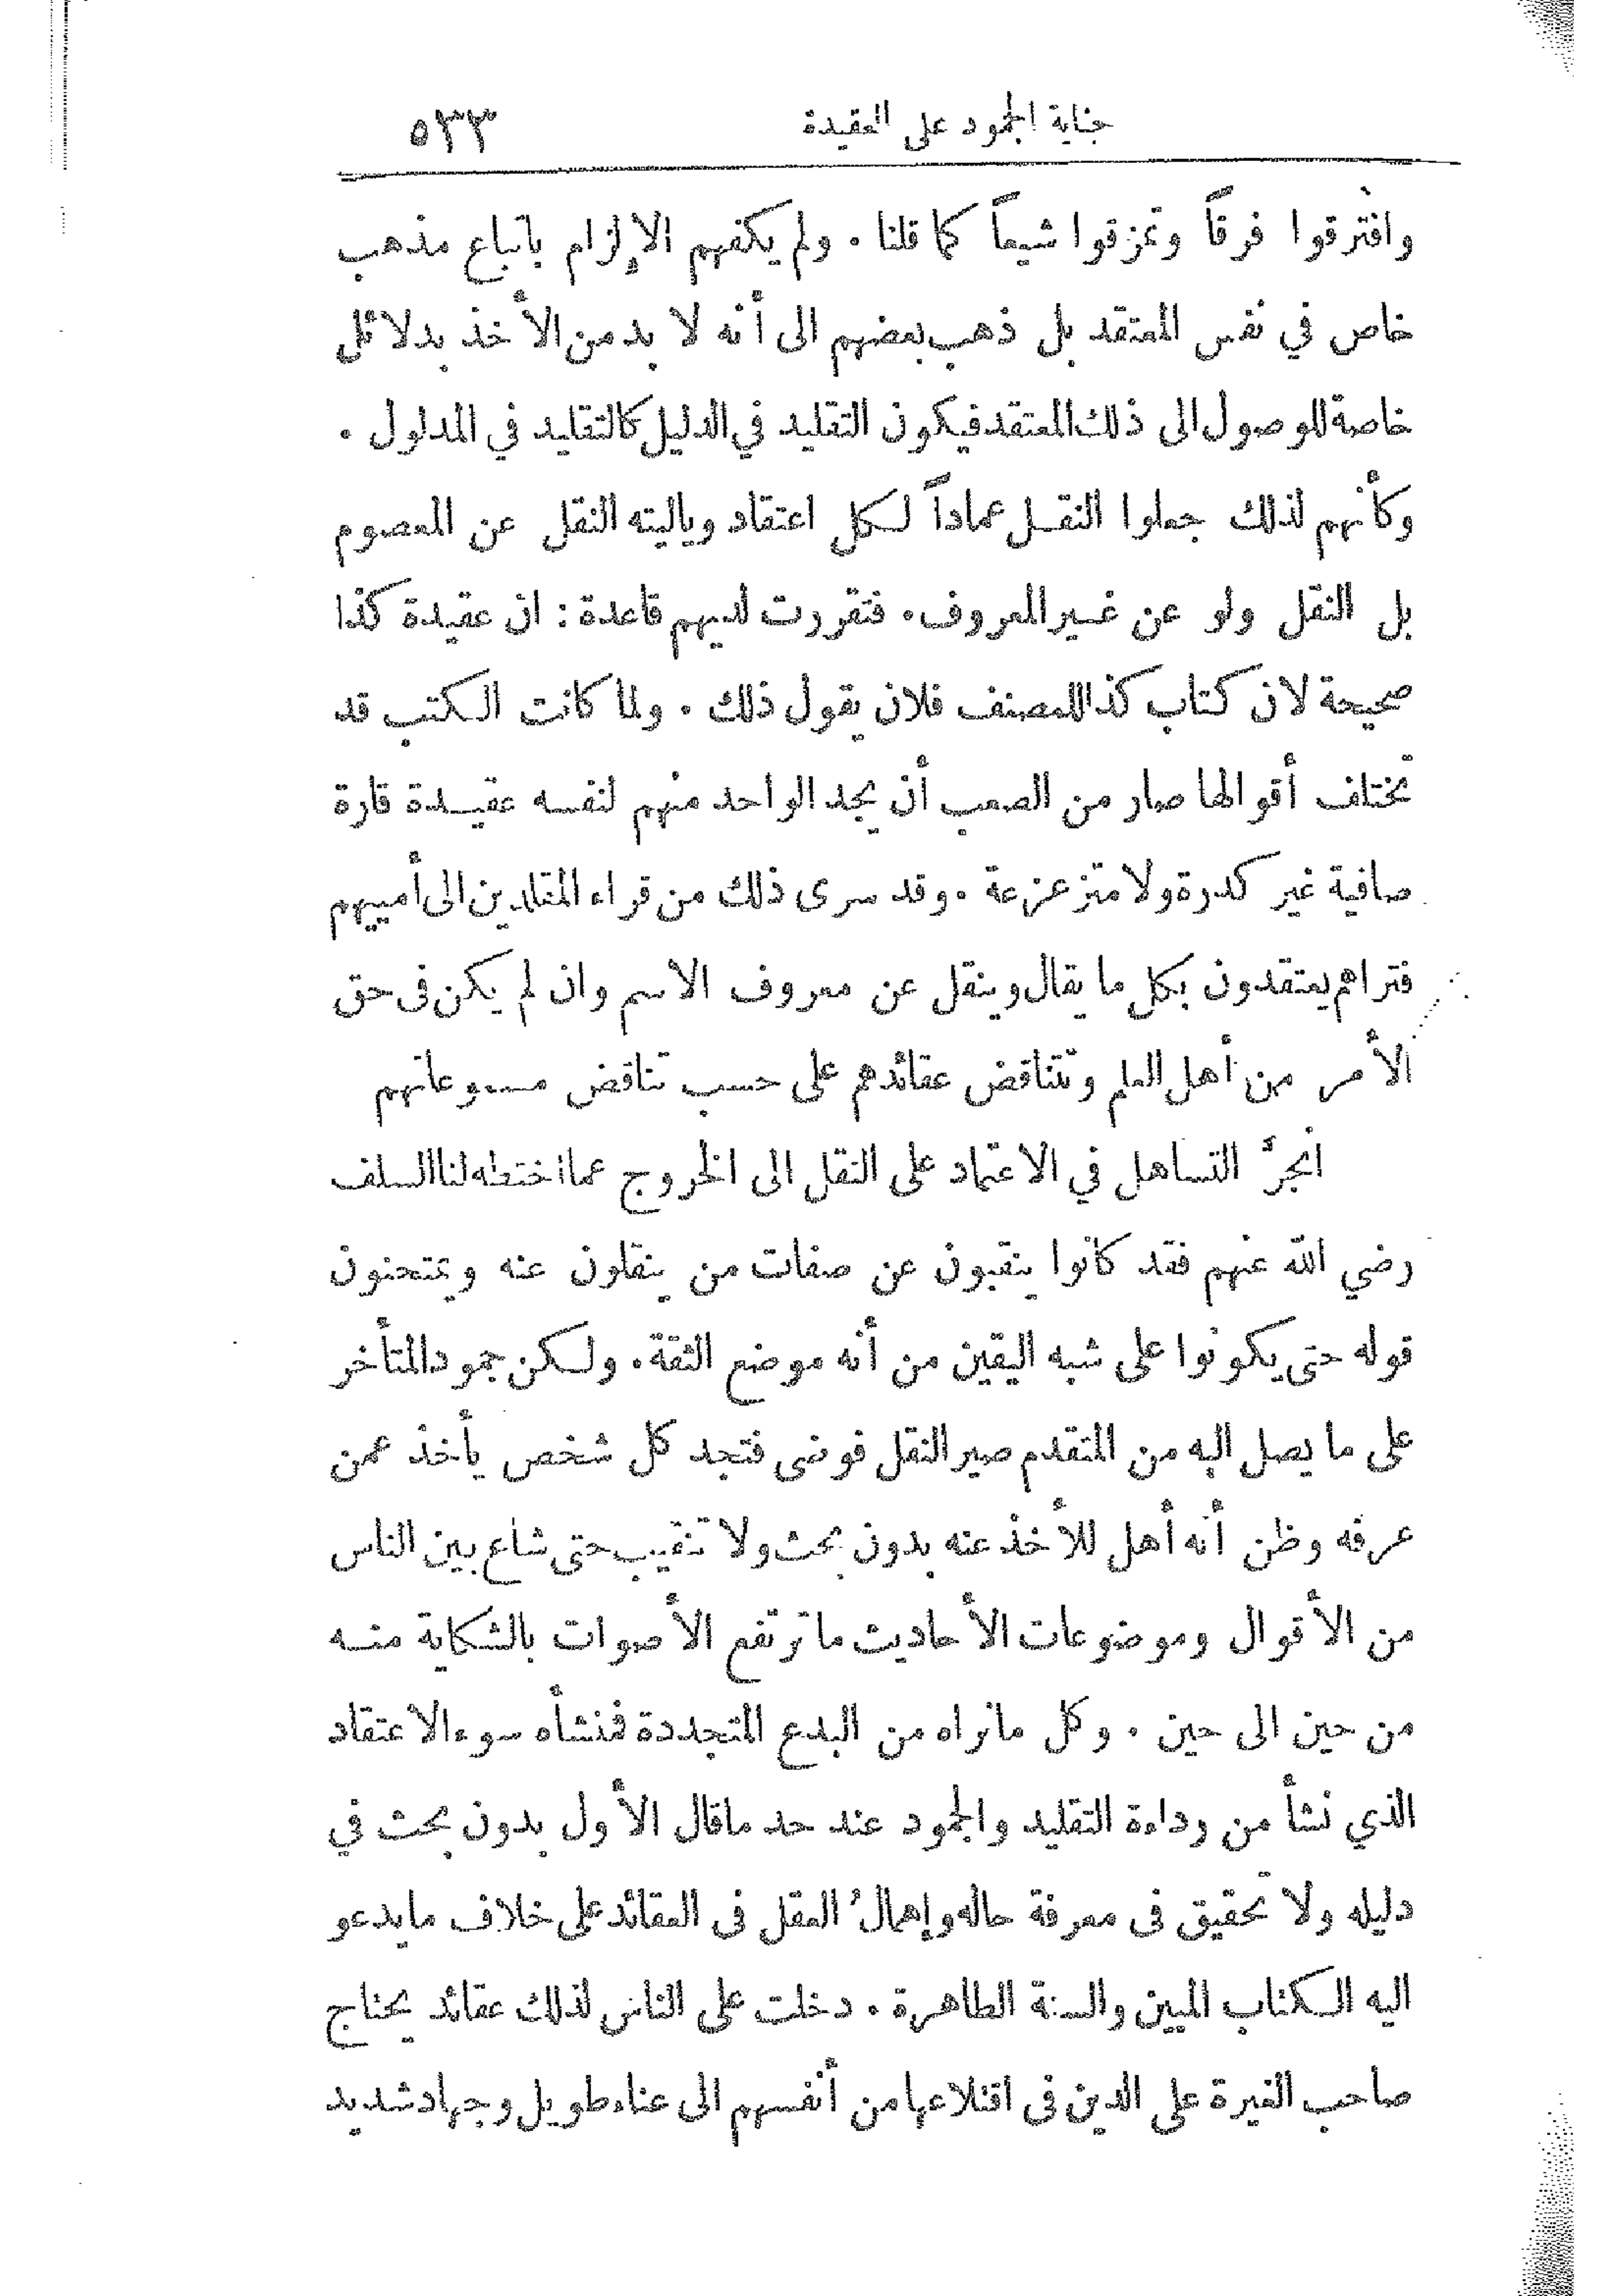 جناية الجمود على العقيدة ٥٣٣
وافترقوا فرقاً وتمزقوا شيعاً كما قلنا . ولم يكفهم الإلزام باتباع مذهب
خاص في نفس المعتقد بل ذهب بعضهم الى أنه لا بد من الأخذ بدلائل
خاصة للوصول الى ذلك المعتقد فيكون التقليد في الدليل كالتقليد في المدلول .
وكأنهم لذلك جعلوا النقل عماداً لكل اعتقاد وياليته النقل عن المعصوم
بل النقل ولو عن غير المعروف . فتقررت لديهم قاعدة : ان عقيدة كذا
صحيحة لان كتاب كذا للمصنف فلان يقول ذلك . ولما كانت الكتب قد
تختلف أقوالها صار من الصعب أن يجد الواحد منهم لنفسه عقيدة قارة
صافية غير كدرة ولا متزعزعة . وقد سرى ذلك من قراء المقلدين الى أمييهم
فتراهم يعتقدون بكل ما يقال وينقل عن معروف الاسم وان لم يكن فى حق
الأمر من أهل العلم وتتناقض عقائدهم على حسب تناقض مسموعاتهم
انجرَّ التساهل في الاعتماد على النقل الى الخروج عما اختطه لنا السلف
رضي الله عنهم فقد كانوا ينقبون عن صفات من ينقلون عنه ويمتحنون
قوله حتى يكونوا على شبه اليقين من أنه موضع الثقة . ولكن جمود المتأخر
على ما يصل اليه من المتقدم صير النقل فوضى فتجد كل شخص يأخذ عمن
عرفه وظن أنه أهل للأخذ عنه بدون بحث ولا تنقيب حتى شاع بين الناس
من الأقوال وموضوعات الأحاديث ما ترتفع الأصوات بالشكاية منه
من حين الى حين . وكل مانراه من البدع المتجددة فمنشأه سوء الاعتقاد
الذي نشأ من رداءة التقليد والجمود عند حد ماقال الأول بدون بحث في
دليله ولا تحقيق فى معرفة حاله وإهمالُ العقل فى العقائد على خلاف مايدعو
اليه الكتاب المبين والسنة الطاهرة . دخلت على الناس لذلك عقائد يحتاج
صاحب الغيرة على الدين فى اقتلاعها من أنفسهم الى عناء طويل وجهاد شديد